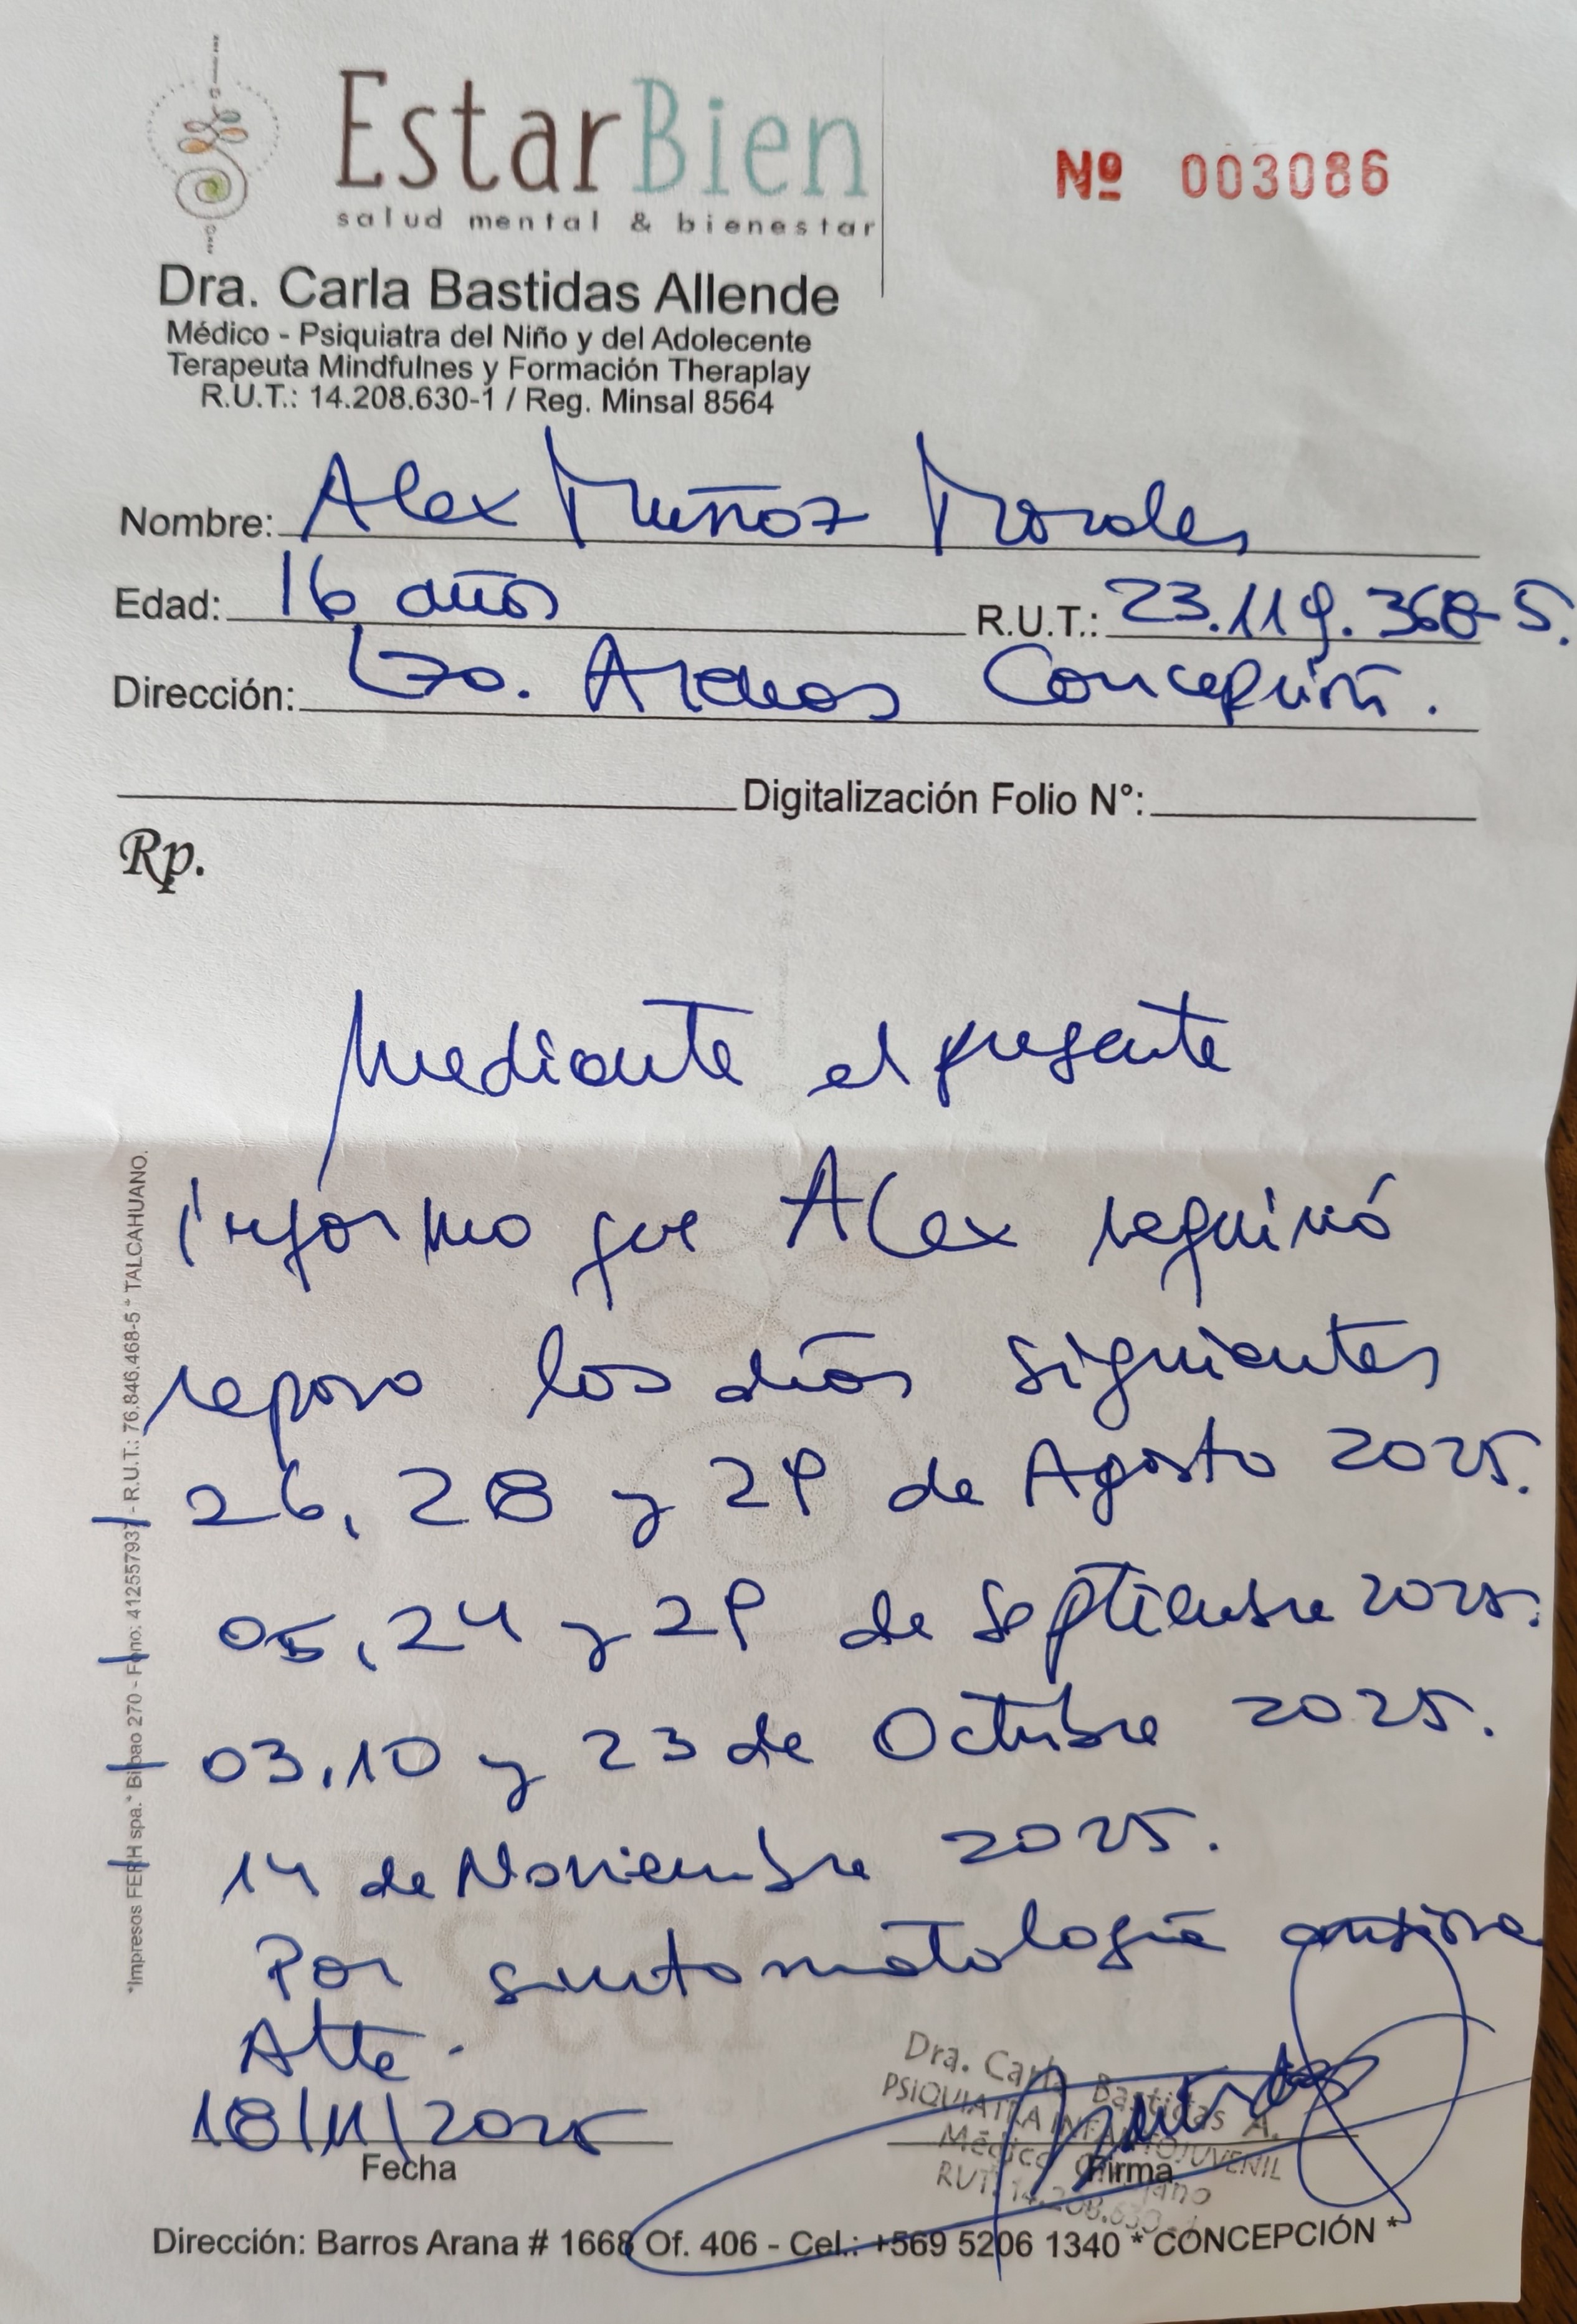 EstarBien
salud mental & bienestar
Nº 003086
Dra. Carla Bastidas Allende
Médico - Psiquiatra del Niño y del Adolecente
Terapeuta Mindfulnes y Formación Theraplay
R.U.T.: 14.208.630-1 / Reg. Minsal 8564
Nombre: Alex Muñoz Morales
Edad: 16 años R.U.T.: 23.119.368-5.
Dirección: Lzo. Arenas Concepción.
Digitalización Folio N°:
Rp.
Mediante el presente
informo que Alex requirió
reposo los días siguientes
- 26, 28 y 29 de Agosto 2025.
- 05, 24 y 29 de Septiembre 2025.
- 03, 10 y 23 de Octubre 2025.
- 14 de Noviembre 2025.
Por sintomatología ansiosa
Atte.
18/11/2025
Fecha
Dra. Carla Bastidas A.
PSIQUIATRA INFANTOJUVENIL
Médico Cirujano
RUT: 14.208.630-1
Firma
Dirección: Barros Arana # 1668 Of. 406 - Cel.: +569 5206 1340 * CONCEPCIÓN *
*Impresos FERH spa.* Bilbao 270 - Fono: 412557937 - R.U.T.: 76.846.468-5 * TALCAHUANO.